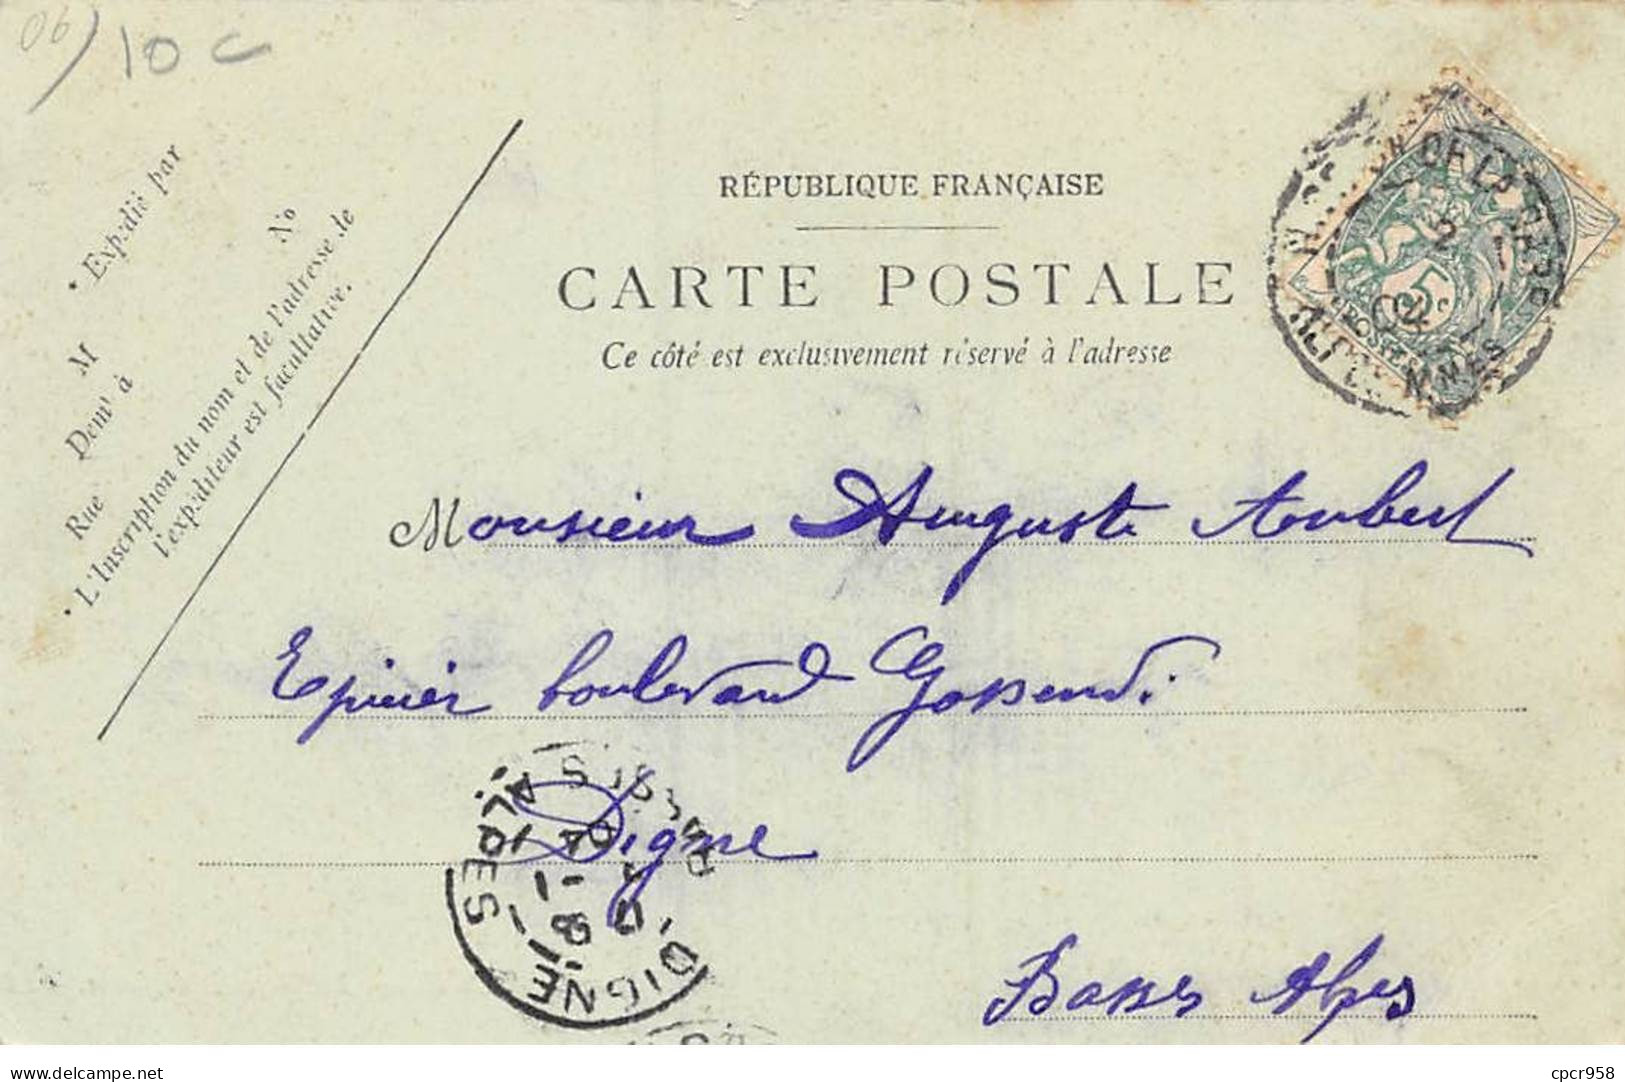 06/ 10 C
RÉPUBLIQUE FRANÇAISE
CARTE POSTALE
Ce côté est exclusivement réservé à l'adresse
* Expédié par
M
Dem^t à
Rue
N°
* L'Inscription du nom et de l'adresse de
l'expéditeur est facultative.
DE LA GARE
2
04
5c
POSTES
Monsieur Auguste Aubert
Epicier boulevard Gassendi
Digne
Basses Alpes
DIGNE
Bses ALPES
delcampe.net
cpcr958